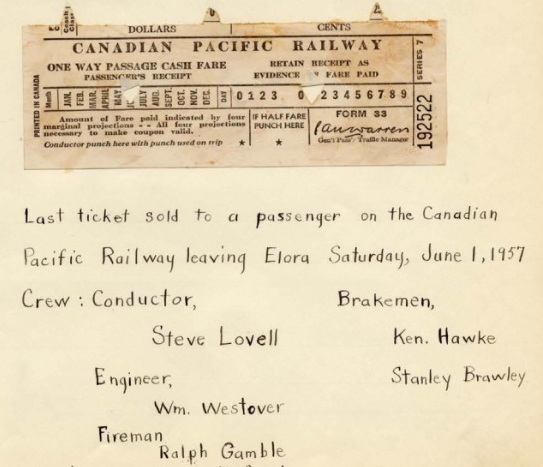 DOLLARS CENTS
CANADIAN PACIFIC RAILWAY
ONE WAY PASSAGE CASH FARE
PASSENGER'S RECEIPT
RETAIN RECEIPT AS
EVIDENCE OF FARE PAID
SERIES 7
PRINTED IN CANADA
Month JAN. FEB. MAR. APRIL MAY JULY AUG. SEPT. OCT. NOV. DEC. DAY 0 1 2 3 0 2 3 4 5 6 7 8 9
Amount of Fare paid indicated by four
marginal projections - - All four projections
necessary to make coupon valid.
Conductor punch here with punch used on trip ★
IF HALF FARE
PUNCH HERE
★
FORM 33
Gen'l Pass'r Traffic Manager
192522
Last ticket sold to a passenger on the Canadian
Pacific Railway leaving Elora Saturday, June 1, 1957
Crew : Conductor, Brakemen,
Steve Lovell Ken. Hawke
Engineer, Stanley Brawley
Wm. Westover
Fireman
Ralph Gamble